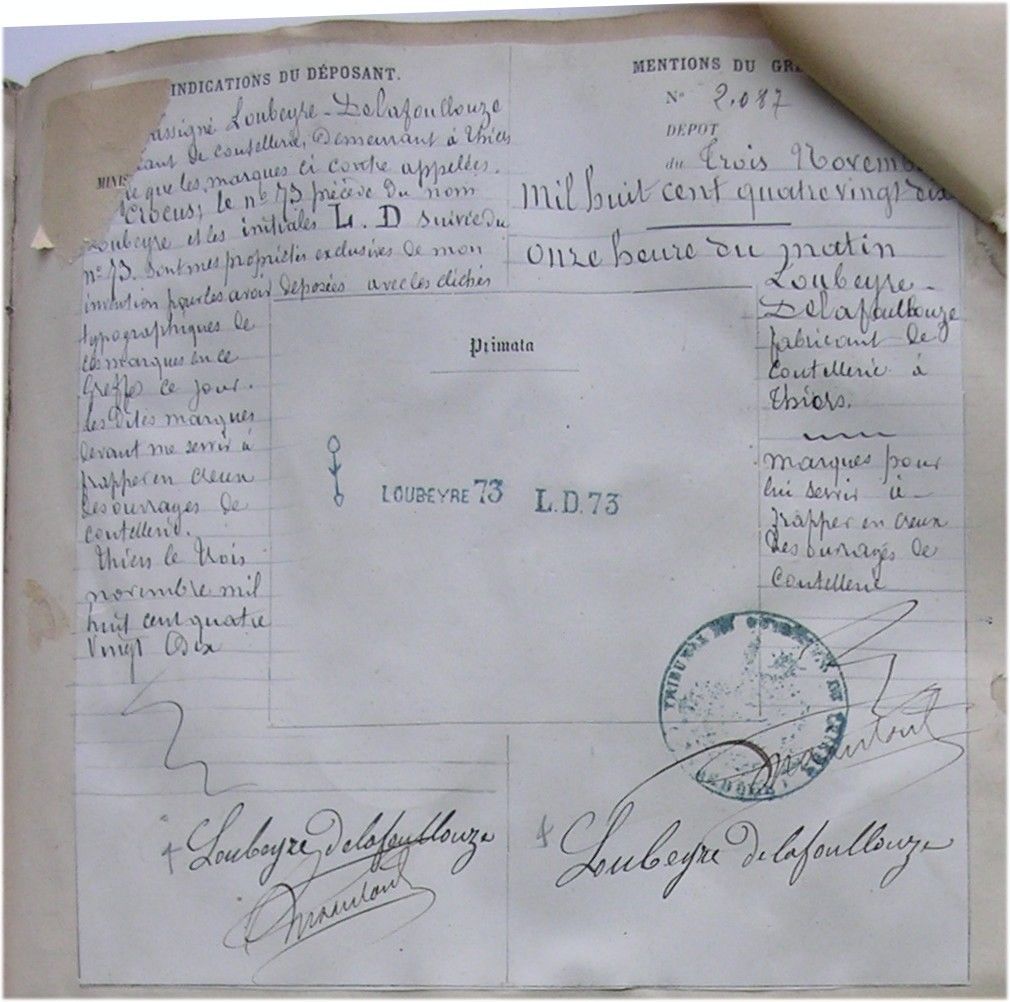 INDICATIONS DU DÉPOSANT.
Loubeyre-Delafoullouze
de coutellerie, Demeurant à Thiers
que les marques ci contre appelées.
Crocus, le nº 73 précédé du nom
Loubeyre et les initiales L. D suivie du
nº 73. sont mes propriétés exclusives de mon
invention pour les avoir déposées avec les clichés
typographiques de
ces marques en ce
Greffe ce jour.
les dites marques
devant me servir à
frapper en creux
les ouvrages de
coutellerie.
Thiers le trois
novembre mil
huit cent quatre
vingt Dix
MENTIONS DU
Nº 2.087
DÉPOT
du Trois Novem
Mil huit cent quatre vingt dix
onze heure du matin
Loubeyre-
Delafoullouze
fabricant de
coutellerie à
Thiers.
marques pour
lui servir à
frapper en creux
les ouvrages de
coutellerie
Primata
LOUBEYRE 73 L.D. 73
TRIBUNAL DE
Loubeyre delafoullouze
Loubeyre delafoullouze